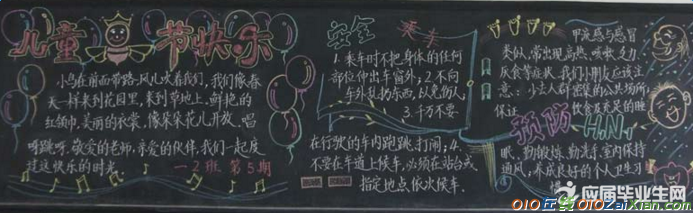 儿童节快乐
小鸟在前面带路,风儿吹着我们,我们像春
天一样来到花园里,来到草地上,鲜艳的
红领巾,美丽的衣裳,像朵朵花儿开放,唱
呀跳呀,敬爱的老师,亲爱的伙伴,我们一起度
过这快乐的时光。
一2班 第5期
安全 乘车
1.乘车时不把身体的任何
部位伸出车窗外;2.不向
车外乱扔东西,以免伤人;
3.千万不要
在行驶的车内跑跳、打闹;4.
不要在车道上候车,必须在站台或
指定地点依次候车.
甲流感与感冒
类似,常出现高热、咳嗽、乏力、
厌食等症状,我们小朋友应该注
意:少去人群密集的公共场所;
保证饮食及充足的睡
预防H1N1
眠、勤锻炼、勤洗手,室内保持
通风,养成良好的个人卫生习
应届毕业生网
010在线 010ZaiXian.com